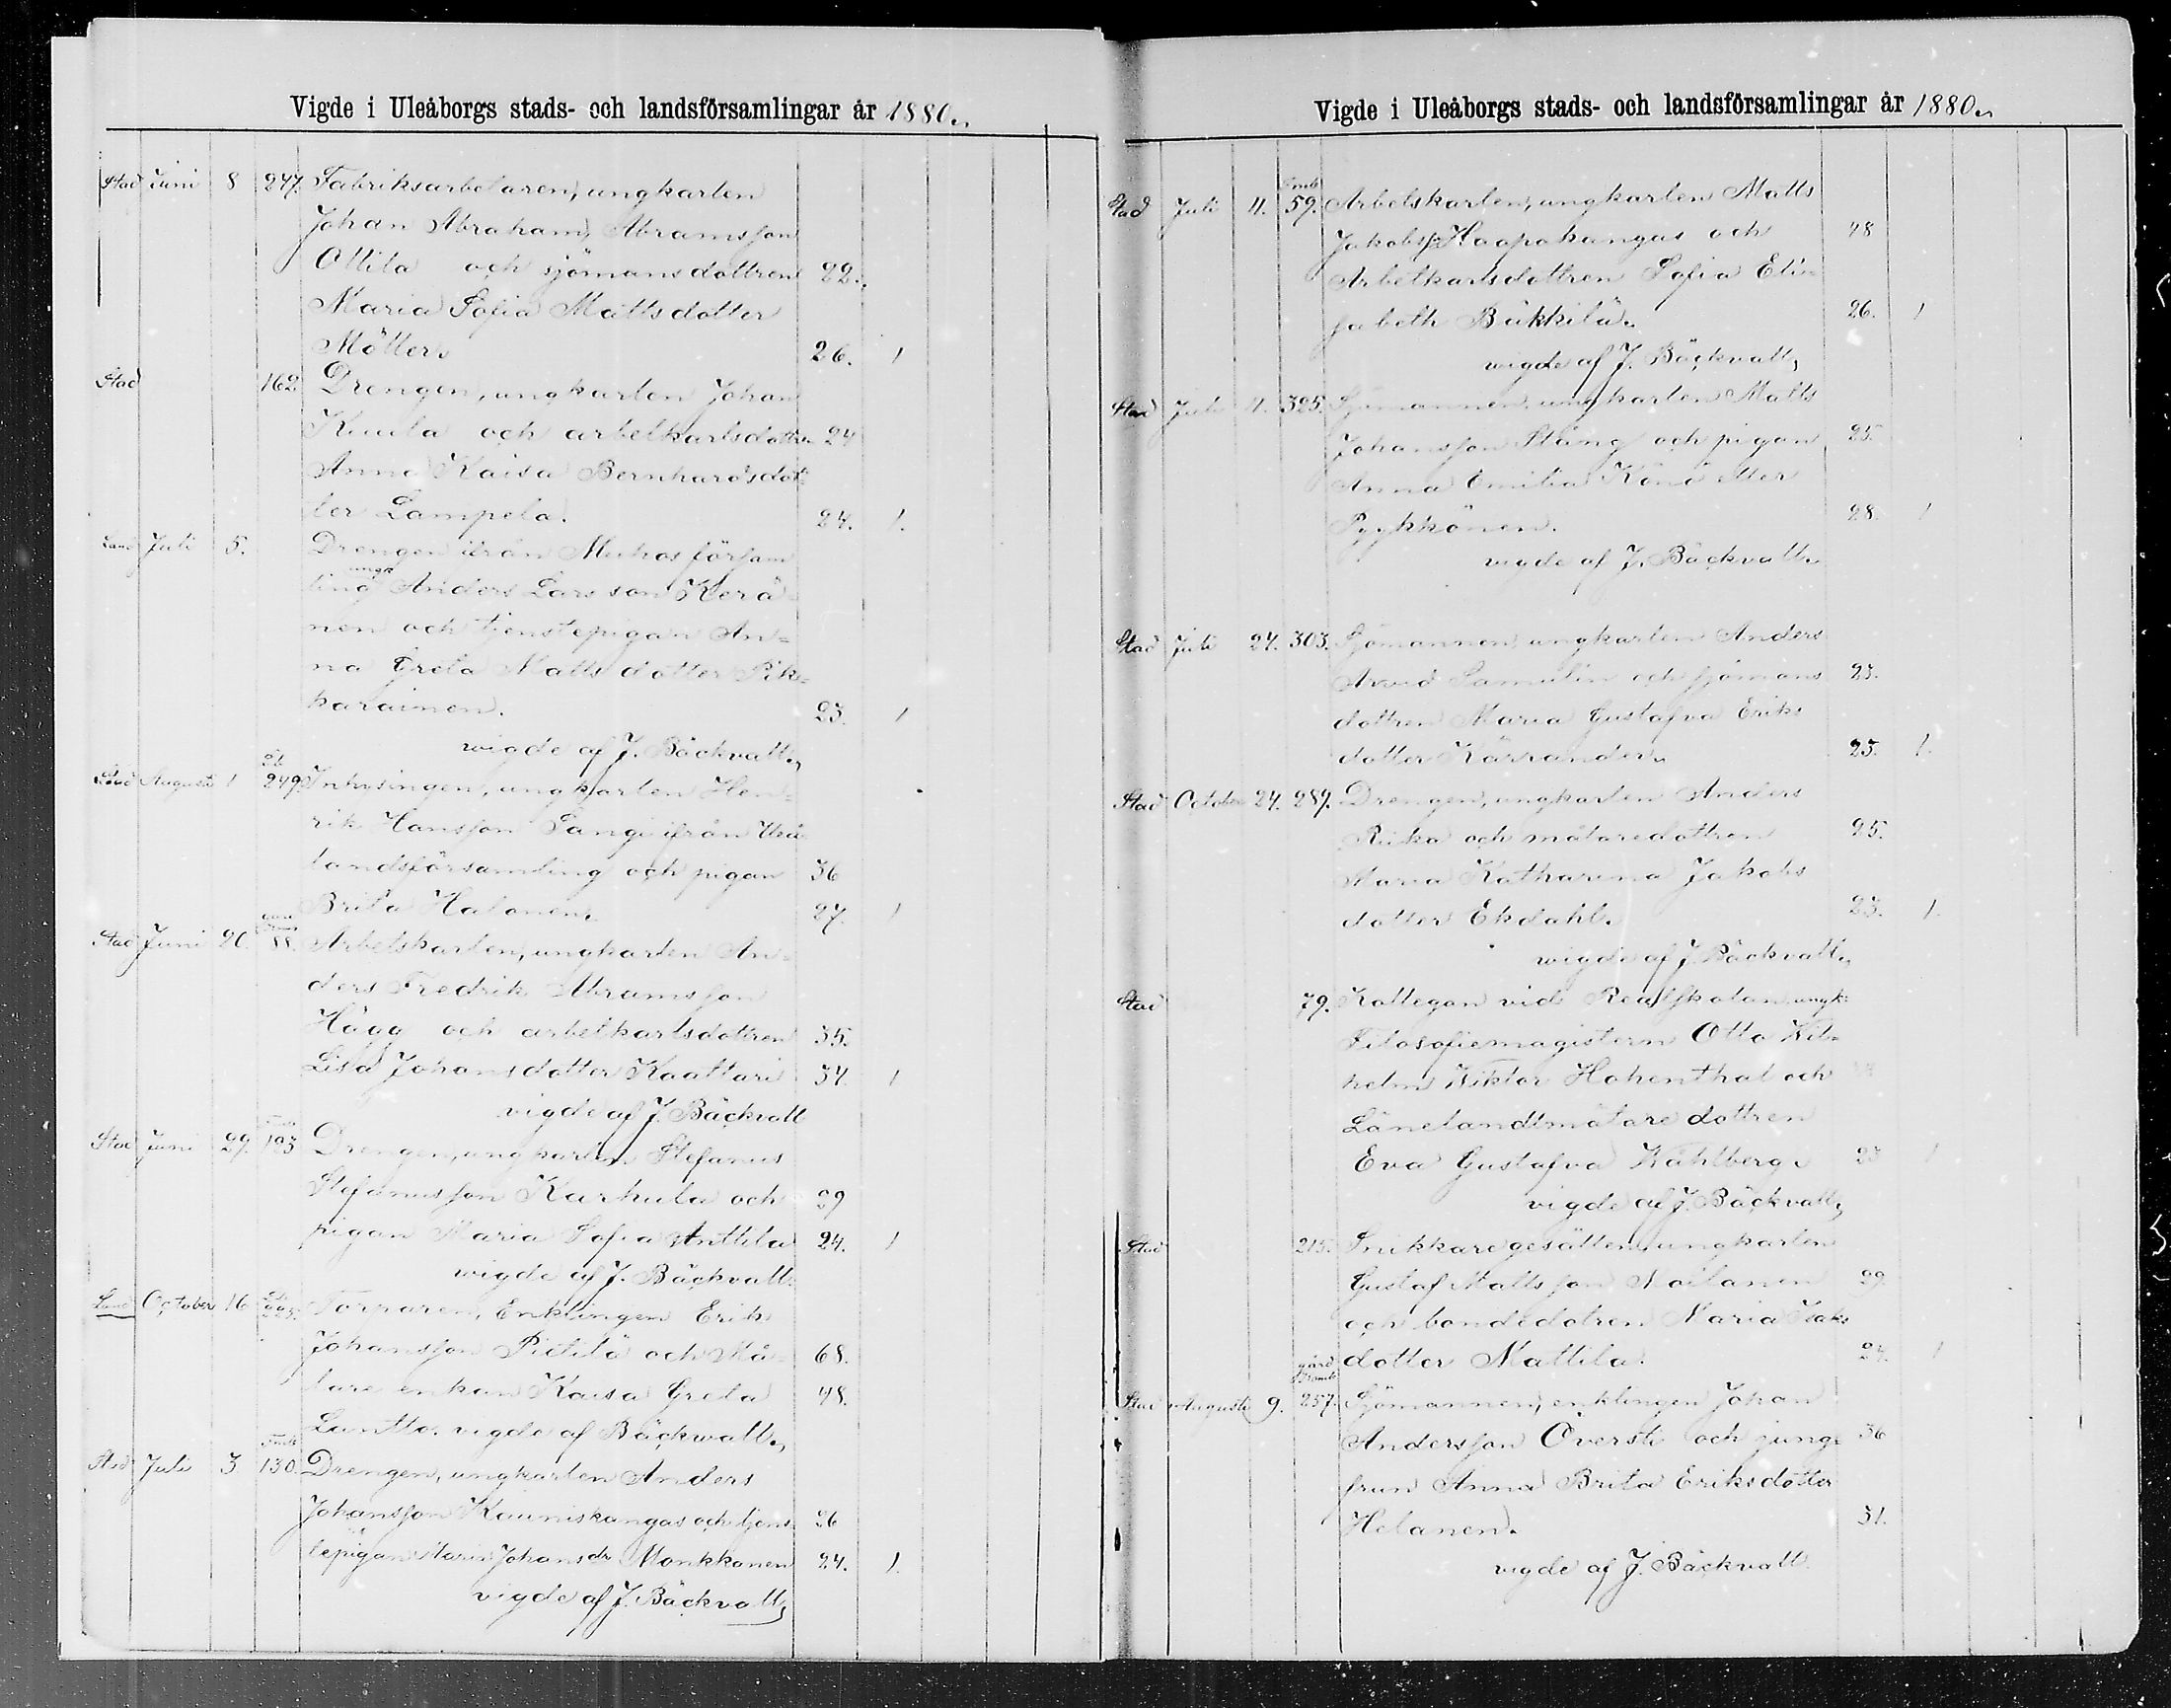 Vigde i Uleåborgs stads- och landsförsamlingar år 1880.
Stad Juni 8 247. Fabriksarbetaren, ungkarlen
Johan Abraham Abramsson
Ollila och sjömansdottren 22.
Maria Sofia Mattsdotter
Möller. 26. 1
Stad 162 Drengen, ungkarlen Johan
Kuula och arbetkarlsdottren 24
Anna Kaisa Bernhardsdot
ter Lampela. 24. 1.
Land Juli 5. Drengen ifrån Muhos församl
ling ungk Anders Larsson Kerä
nen och tjenstepigan An=
na Greta Mattsdotter Pik=
karainen. 23. 1
vigde af J. Bäckvall.
Stad Augusti 1 249. Inhysingen, ungkarlen Hen=
rik Hansson Sangi ifrån Uleå
landsförsamling och pigan 36
Brita Halonen. 27. 1
Stad Juni 20. 88. Arbetskarlen, ungkarlen An=
ders Fredrik Abramsson
Hägg och arbetkarlsdottren 35.
Lisa Johansdotter Kaattari 34. 1
vigde af J. Bäckvall
Stad Juni 29. 193 Drengen, ungkarlen Stefanus
Stefanusson Karhula och 29
pigan Maria Sofia Anttila 24. 1
vigde af J. Bäckvall.
Land October 16 225. Torparen, Enklingen Erik
Johansson Pietilä och Må= 68.
lare enkan Kaisa Greta 48.
Lantto. vigde af Bäckvall.
Stad Juli 3 130. Drengen, ungkarlen Anders
Johansson Kauniskangas och tjens 26
tepigan Maria Johansdr Monkkonen 24. 1.
vigde af J. Bäckvall,
Vigde i Uleåborgs stads- och landsförsamlingar år 1880.
Stad Juli 11. 59. Arbetskarlen, ungkarlen Matts
Jakobss. Haapakangas och 48
Arbetkarlsdottren Sofia Eli=
sabeth Bäkkilä. 26. 1
vigde af J. Bäckvall,
Stad Juli 11. 325. Sjömannen, ungkarlen Matts
Johansson Stång och pigan 25.
Anna Emilia Könö eller
Pyykkönen. 28. 1
vigde af J. Bäckvall.
Stad Juli 24. 303. Sjömannen, ungkarlen Anders
Arvid Samulin och sjömans 23.
dottren Maria Gustafva Eriks
dotter Kärrander. 25. 1.
Stad October 24. 289. Drengen, ungkarlen Anders
Ruka och målaredottren 25.
Maria Katharina Jakobs
dotter Ekdahl. 23. 1.
vigde af J. Bäckvall,
Stad 79. Kollegan vid Realskolan ungk:
Filosofiemagistern Otto Wil=
helm Wiktor Hohenthal och
Länelandtmätare dottren
Eva Gustafva Wahlberg. 23 1
vigde af J. Bäckvall,
Stad 215. Snikkaregesällen, ungkarlen
Gustaf Mattsson Moilanen 29.
och bondedotren Maria Isaks
dotter Mattila. 24. 1
Stad Augusti 9. gård 257. Sjömannen, enklingen Johan
Andersson Öfversti och jung= 36
frun Anna Brita Eriksdotter
Helanen. 31.
vigde af J. Bäckvall